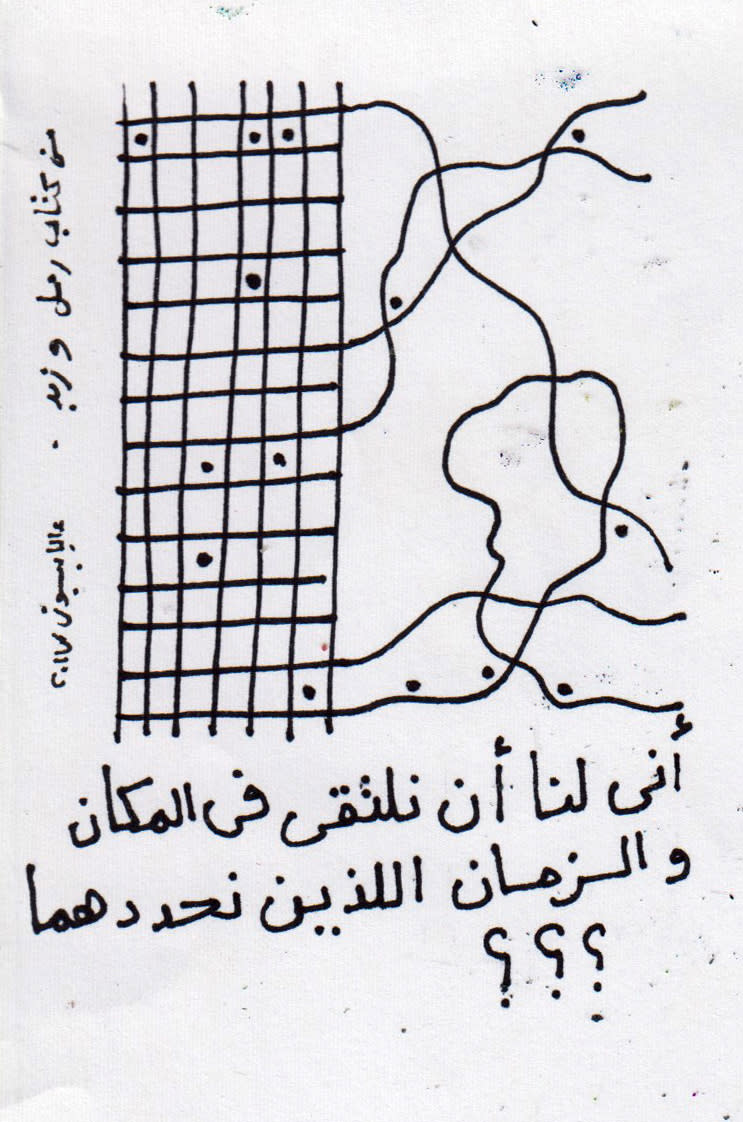 أنى لنا أن نلتقى فى المكان
والزمان اللذين نحددهما
؟؟؟
من كتاب رمل و زبد -
٢٠١٧